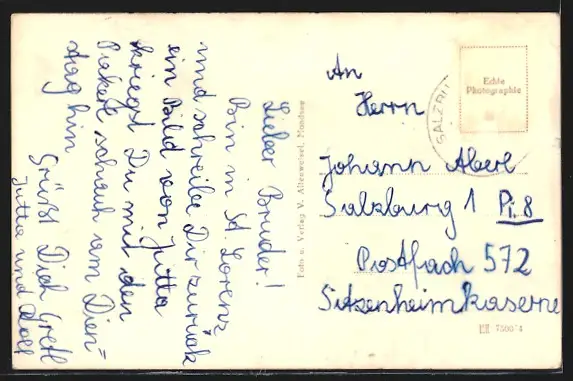 Lieber Bruder!
Bin in St. Lorenz
und schreibe Dir zurück
ein Bild von Jutta
kriegst Du mit den
Paket schauh am Dien=
stag hin
Grüßt Dich Gretl
Jutta und Rolf
Foto u. Verlag V. Altenweisel, Mondsee
An
Herrn
Johann Aberl
Salzburg 1 Pi. 8
Postfach 572
Sitzenheimkaserne
SALZBU
Echte
Photographie